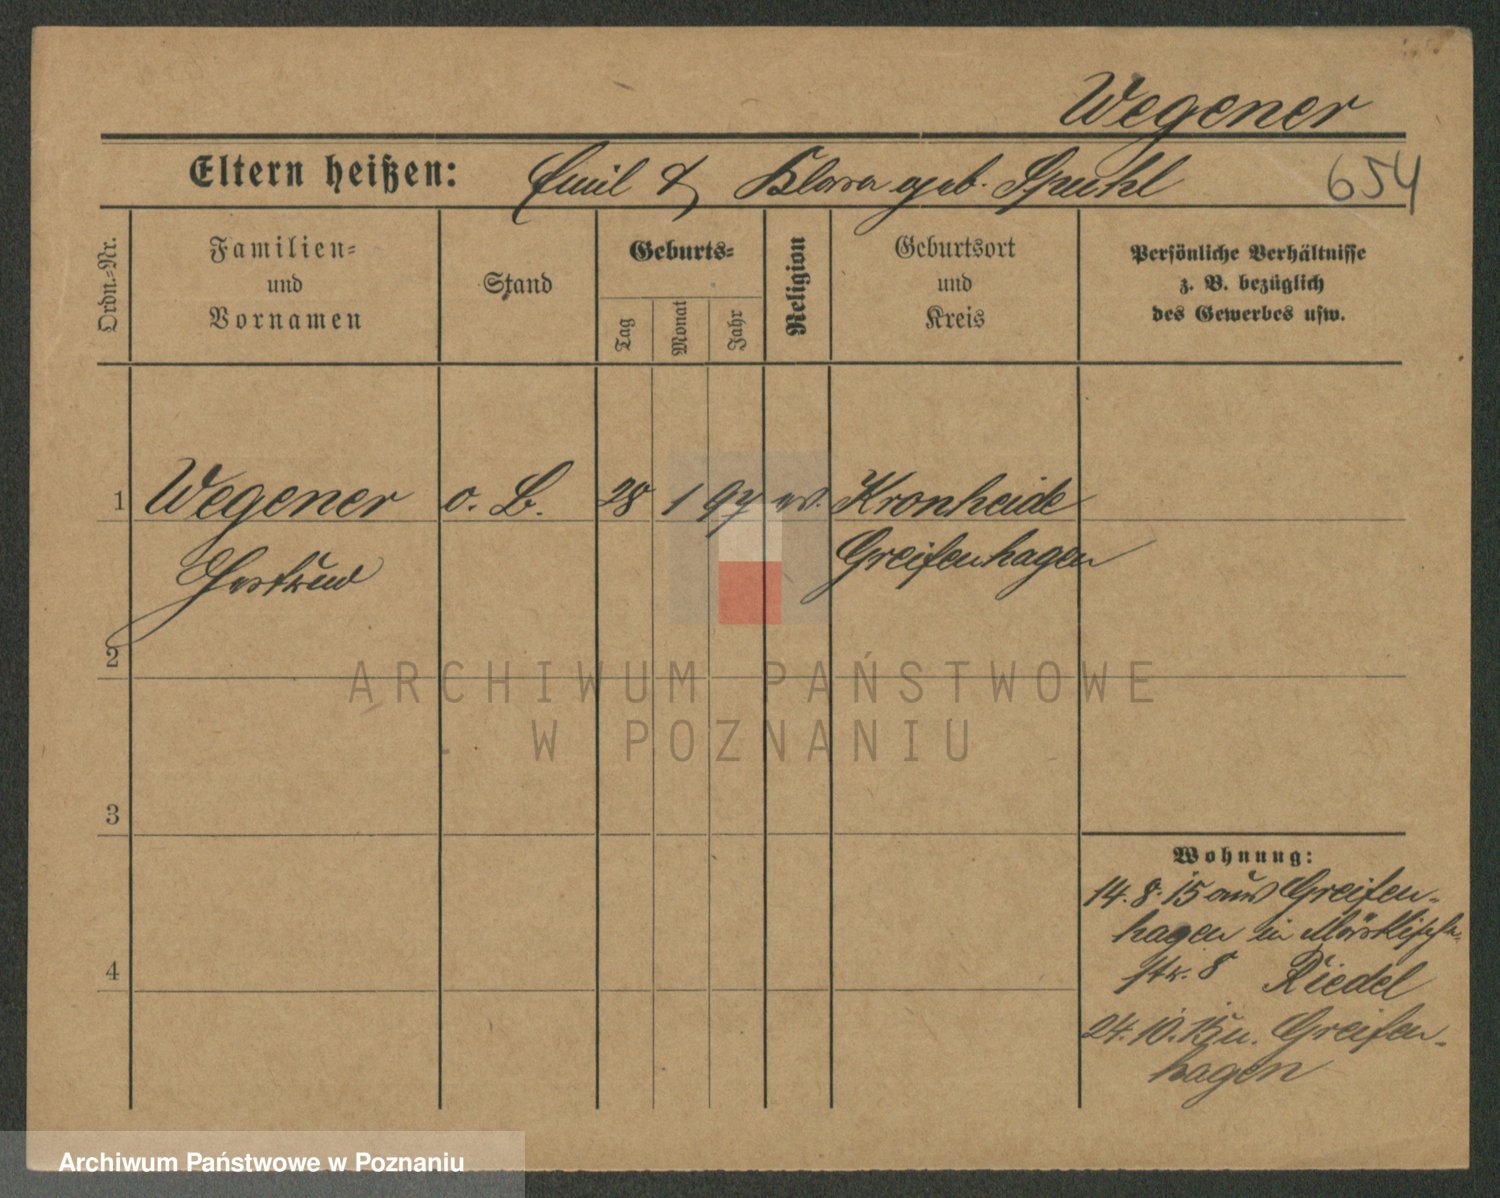 Wegener
Eltern heißen: Emil & Klara geb. Spuhl
654
Ordn.=Nr.
Familien=
und
Vornamen
Stand
Geburts=
Tag
Monat
Jahr
Religion
Geburtsort
und
Kreis
Persönliche Verhältnisse
z. B. bezüglich
des Gewerbes usw.
1 Wegener o. B. 28 1 97 ev. Kronheide
Gertrud Greifenhagen
2
3
4
Wohnung:
14.8.15 aus Greifen-
hagen in Märkische
str. 8 Riedel
24.10.15 n. Greifen-
hagen
ARCHIWUM PAŃSTWOWE
W POZNANIU
Archiwum Państwowe w Poznaniu